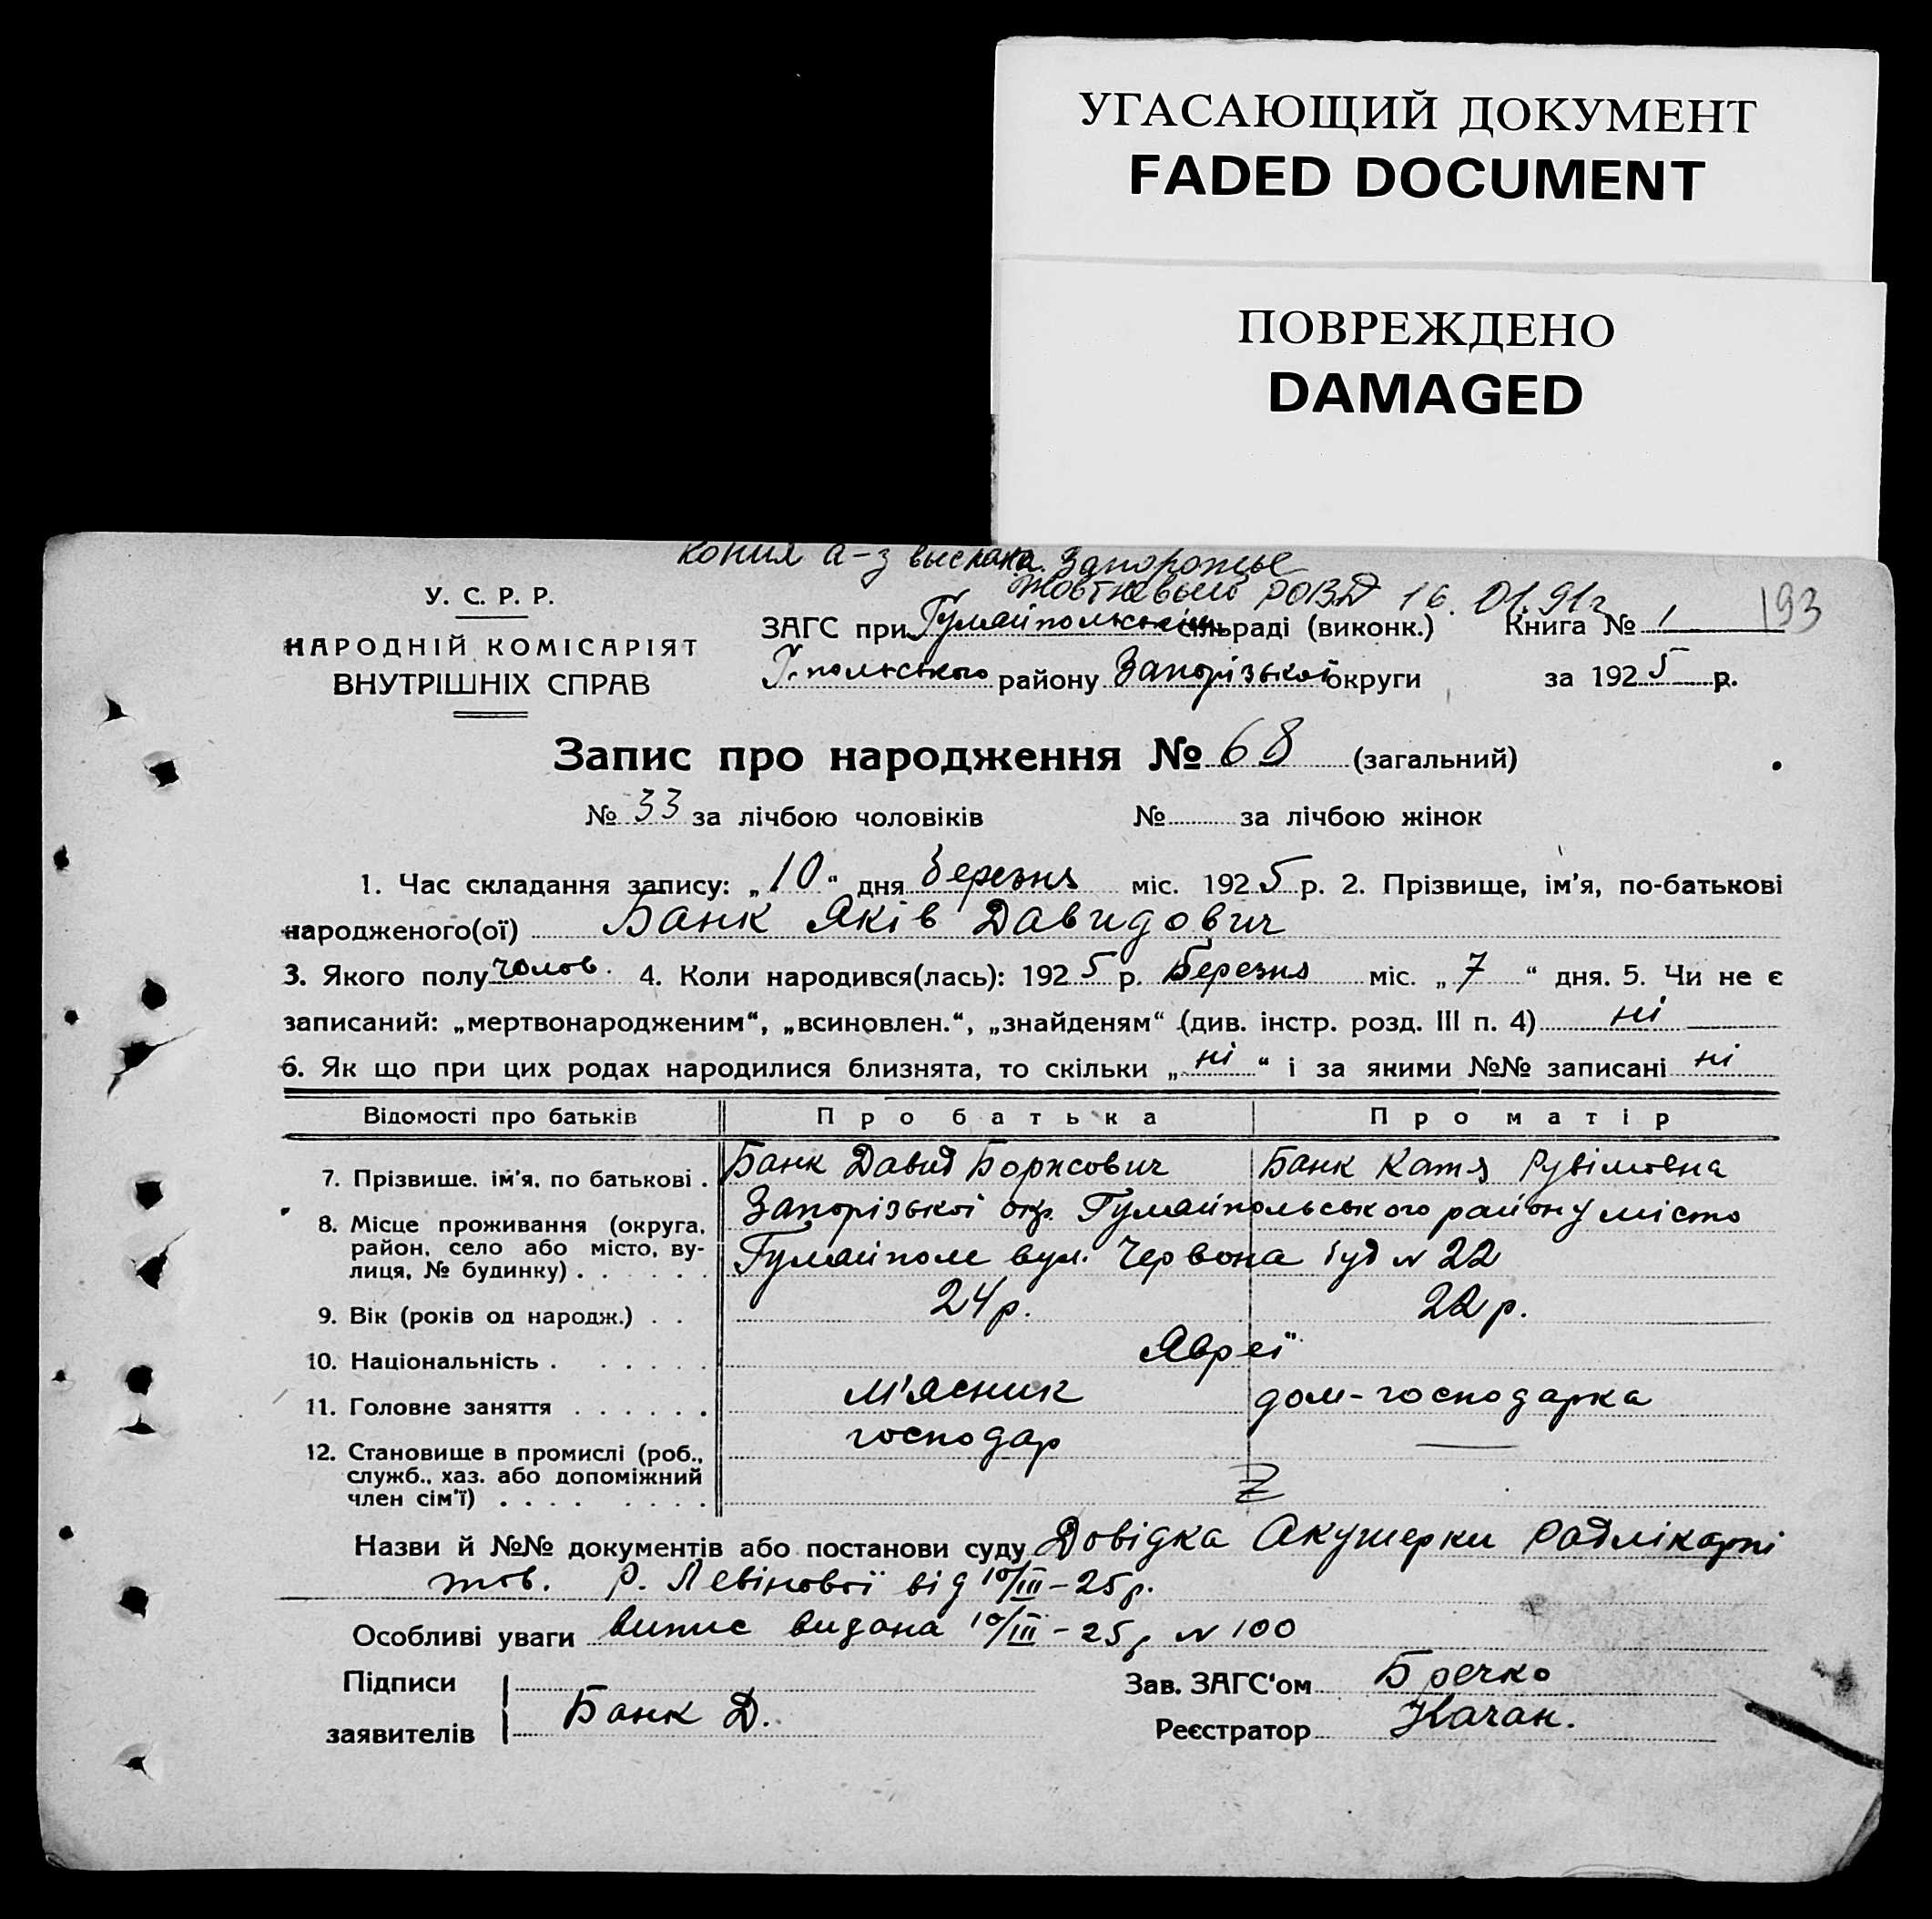 УГАСАЮЩИЙ ДОКУМЕНТ
FADED DOCUMENT
ПОВРЕЖДЕНО
DAMAGED
копия а-з выслана Запорожье
Жовтневый РОВД 16.01.91г
193
У. С. Р. Р.
НАРОДНІЙ КОМІСАРІЯТ
ВНУТРІШНІХ СПРАВ
ЗАГС при Гуляйпольській сільраді (виконк.) Книга № 1
Г-польського району Запорізької округи за 1925 р.
Запис про народження № 68 (загальний)
№ 33 за лічбою чоловіків № за лічбою жінок
1. Час складання запису: „10“ дня березня міс. 1925 р. 2. Прізвище, ім'я, по-батькові
народженого(ої) Банк Яків Давидович
3. Якого полу чолов. 4. Коли народився(лась): 1925 р. Березня міс. „7“ дня. 5. Чи не є
записаний: „мертвонародженим“, „всиновлен.“, „знайденям“ (див. інстр. розд. III п. 4) ні
6. Як що при цих родах народилися близнята, то скільки „ні“ і за якими №№ записані ні
Відомості про батьків Про батька Про матір
7. Прізвище, ім'я, по батькові . Банк Давид Борисович Банк Катя Рувімовна
8. Місце проживання (округа, район, село або місто, вулиця, № будинку) . . . . . . Запорізької окр. Гуляйпольського району місто
Гуляйполе вул. Червона буд № 22
9. Вік (років од народж.) . . 24 р. 22 р.
10. Національність . . . . . . Явреї
11. Головне заняття . . . . . . М'ясник дом-господарка
12. Становище в промислі (роб., служб., хаз. або допоміжний член сім'ї) . . . . . . . . господар —
Z
Назви й №№ документів або постанови суду Довідка Акушерки Радлікарні
тов. Р. Левінової від 10/III-25р.
Особливі уваги випис видана 10/III-25р № 100
Підписи заявителів Банк Д.
Зав. ЗАГС'ом Бречко
Реєстратор Качан.